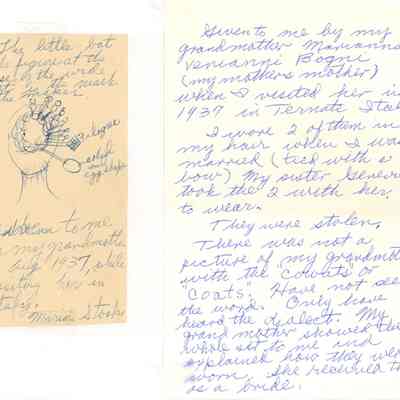 The little bat
figure at the
of the bride
the mark
filigree
solid
egg shape
to me
my grandmother
Aug 1937, while
visiting her in
Italy.
Miriam
Given to me by my
grandmother Marianna
Venianni Bogni
(my mothers mother)
when I visited her in
1937 in Ternate Ital
I wore 2 of them in
my hair when I was
married (tied with a
bow) My sister Genevie
took the 2 with her
to wear.
They were stolen.
There was not a
picture of my grandmoth
with the "Couats" or
"Coats". Have not see
the word. Only have
heard the dialect. My
grand mother showed the
whole set to me and
explained how they were
worn. She received th
as a bride.